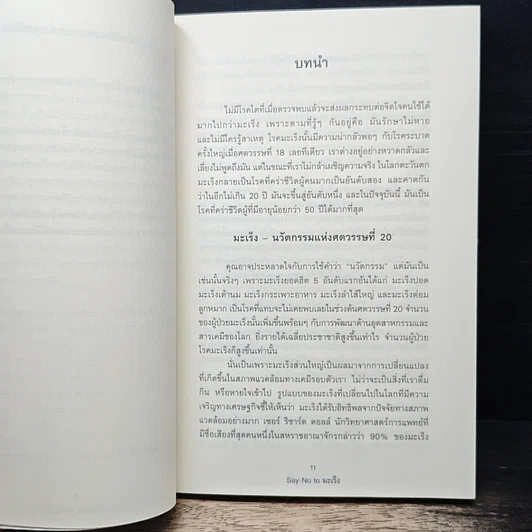 บทนำ
ไม่มีโรคใดที่เมื่อตรวจพบแล้วจะส่งผลกระทบต่อจิตใจคนไข้ได้
มากไปกว่ามะเร็ง เพราะตามที่รู้ๆ กันอยู่คือ มันรักษาไม่หาย
และไม่มีใครรู้สาเหตุ โรคมะเร็งนั้นมีความน่ากลัวพอๆ กับโรคระบาด
ครั้งใหญ่เมื่อศตวรรษที่ 18 เลยทีเดียว เราต่างอยู่อย่างหวาดกลัวและ
เลี่ยงไม่พูดถึงมัน แต่ในขณะที่เราไม่กล้าเผชิญความจริง ในโลกตะวันตก
มะเร็งกลายเป็นโรคที่คร่าชีวิตผู้คนมากเป็นอันดับสอง และคาดกัน
ว่าในอีกไม่เกิน 20 ปี มันจะขึ้นสู่อันดับหนึ่ง และในปัจจุบันนี้ มันเป็น
โรคที่คร่าชีวิตผู้ที่มีอายุน้อยกว่า 50 ปีได้มากที่สุด
มะเร็ง – นวัตกรรมแห่งศตวรรษที่ 20
คุณอาจประหลาดใจกับการใช้คำว่า “นวัตกรรม” แต่มันเป็น
เช่นนั้นจริงๆ เพราะมะเร็งยอดฮิต 5 อันดับแรกอันได้แก่ มะเร็งปอด
มะเร็งเต้านม มะเร็งกระเพาะอาหาร มะเร็งลำไส้ใหญ่ และมะเร็งต่อม
ลูกหมาก เป็นโรคที่แทบจะไม่เคยพบเลยในช่วงต้นศตวรรษที่ 20 จำนวน
ของผู้ป่วยมะเร็งนั้นเพิ่มขึ้นพร้อมๆ กับการพัฒนาด้านอุตสาหกรรมและ
สารเคมีของโลก ยิ่งรายได้เฉลี่ยประชาชาติสูงขึ้นเท่าไร จำนวนผู้ป่วย
โรคมะเร็งก็สูงขึ้นเท่านั้น
นั่นเป็นเพราะมะเร็งส่วนใหญ่เป็นผลมาจากการเปลี่ยนแปลง
ที่เกิดขึ้นในสภาพแวดล้อมทางเคมีรอบตัวเรา ไม่ว่าจะเป็นสิ่งที่เราดื่ม
กิน หรือหายใจเข้าไป รูปแบบของมะเร็งที่เปลี่ยนไปในโลกที่มีความ
เจริญทางเศรษฐกิจชี้ให้เห็นว่า มะเร็งได้รับอิทธิพลจากปัจจัยทางสภาพ
แวดล้อมอย่างมาก เซอร์ ริชาร์ด ดอลล์ นักวิทยาศาสตร์การแพทย์ที่
มีชื่อเสียงที่สุดคนหนึ่งในสหราชอาณาจักรกล่าวว่า 90% ของมะเร็ง
11
Say No to มะเร็ง